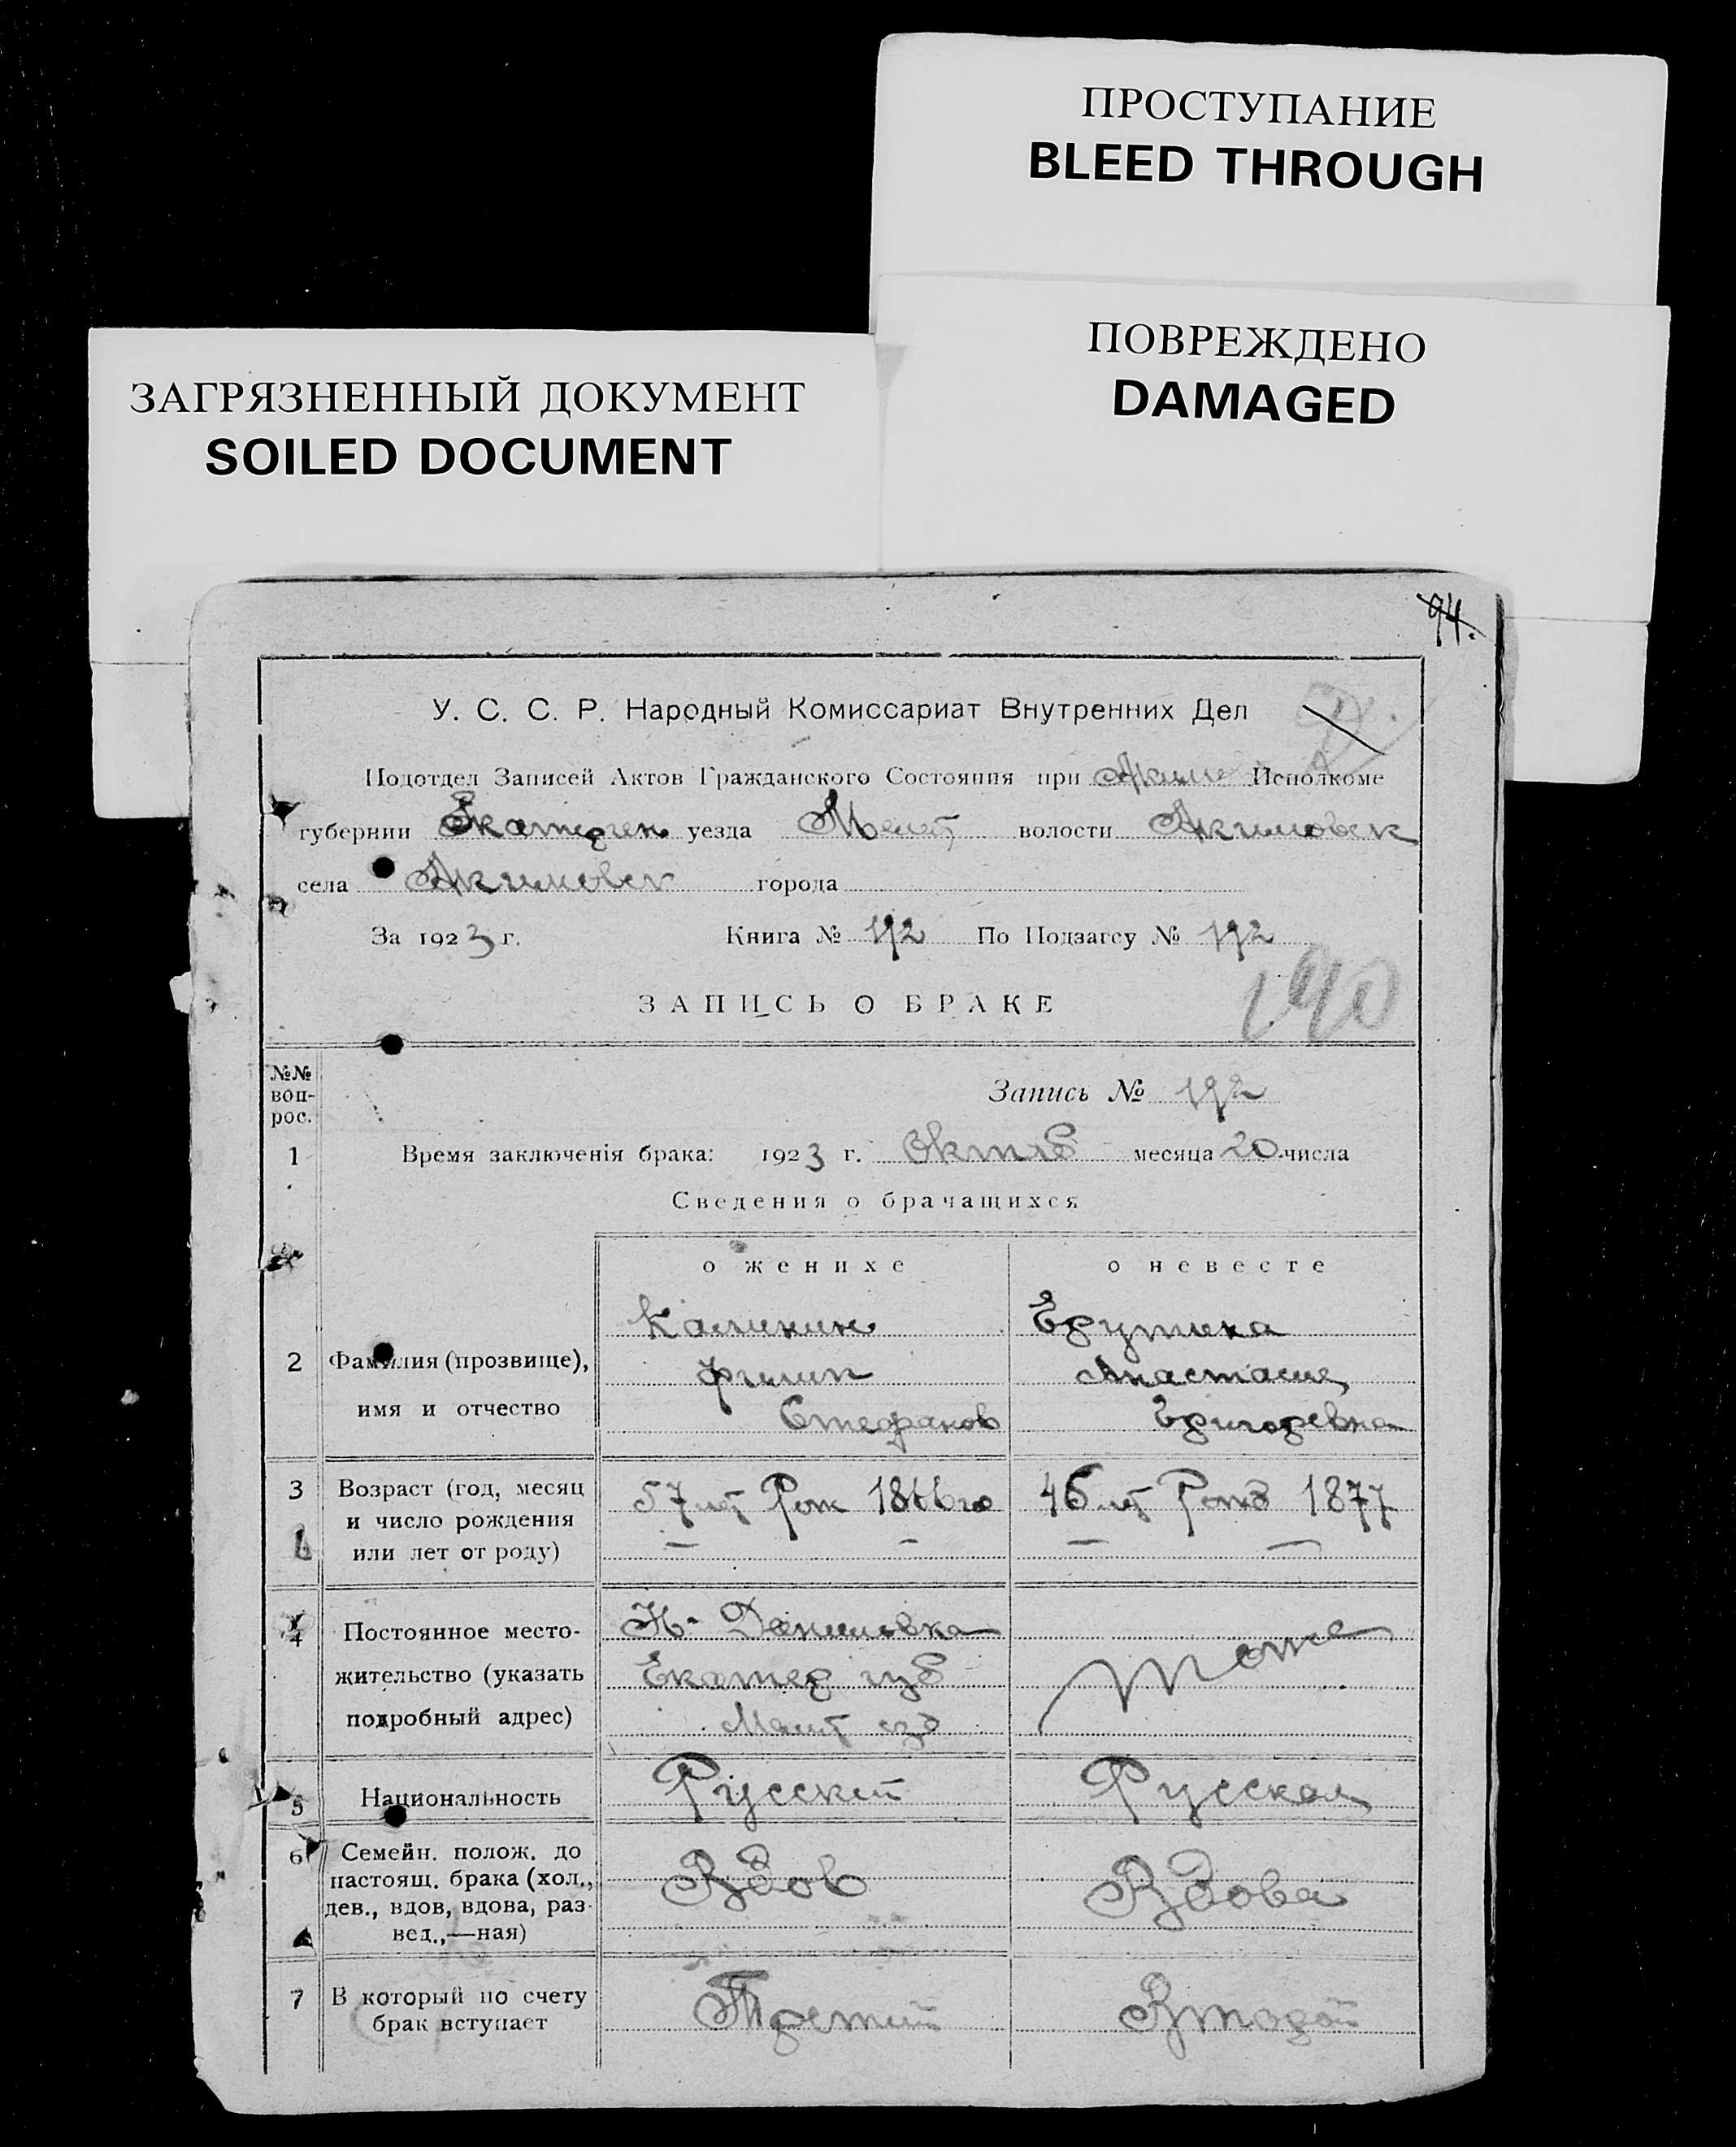 ПРОСТУПАНИЕ
BLEED THROUGH
ПОВРЕЖДЕНО
DAMAGED
ЗАГРЯЗНЕННЫЙ ДОКУМЕНТ
SOILED DOCUMENT
94.
У. С. С. Р. Народный Комиссариат Внутренних Дел
Подотдел Записей Актов Гражданского Состояния при Исполкоме
губернии Екатерин уезда Мелит волости Акимовск
села Акимовск города
За 1923 г. Книга № 192 По Подзагсу № 192
190
ЗАПИСЬ О БРАКЕ
№№ воп-рос.
Запись № 192
1 Время заключенія брака: 1923 г. Октяб месяца 20 числа
Сведения о брачащихся
о женихе о невесте
2 Фамилия (прозвище), имя и отчество
Калинин
Филип
Стефанов
Анастасия
Григоревна
3 Возраст (год, месяц и число рождения или лет от роду)
57 лет Рож 1866 го
46 лет Рожд 1877
4 Постоянное место-жительство (указать подробный адрес)
Н-Даниловка
Екатер губ
Мелит уезд
тоже
5 Национальность
Русский
Русская
6 Семейн. полож. до настоящ. брака (хол., дев., вдов, вдова, раз-вед.,—ная)
Вдов
Вдова
7 В который по счету брак вступает
Третий
Второй